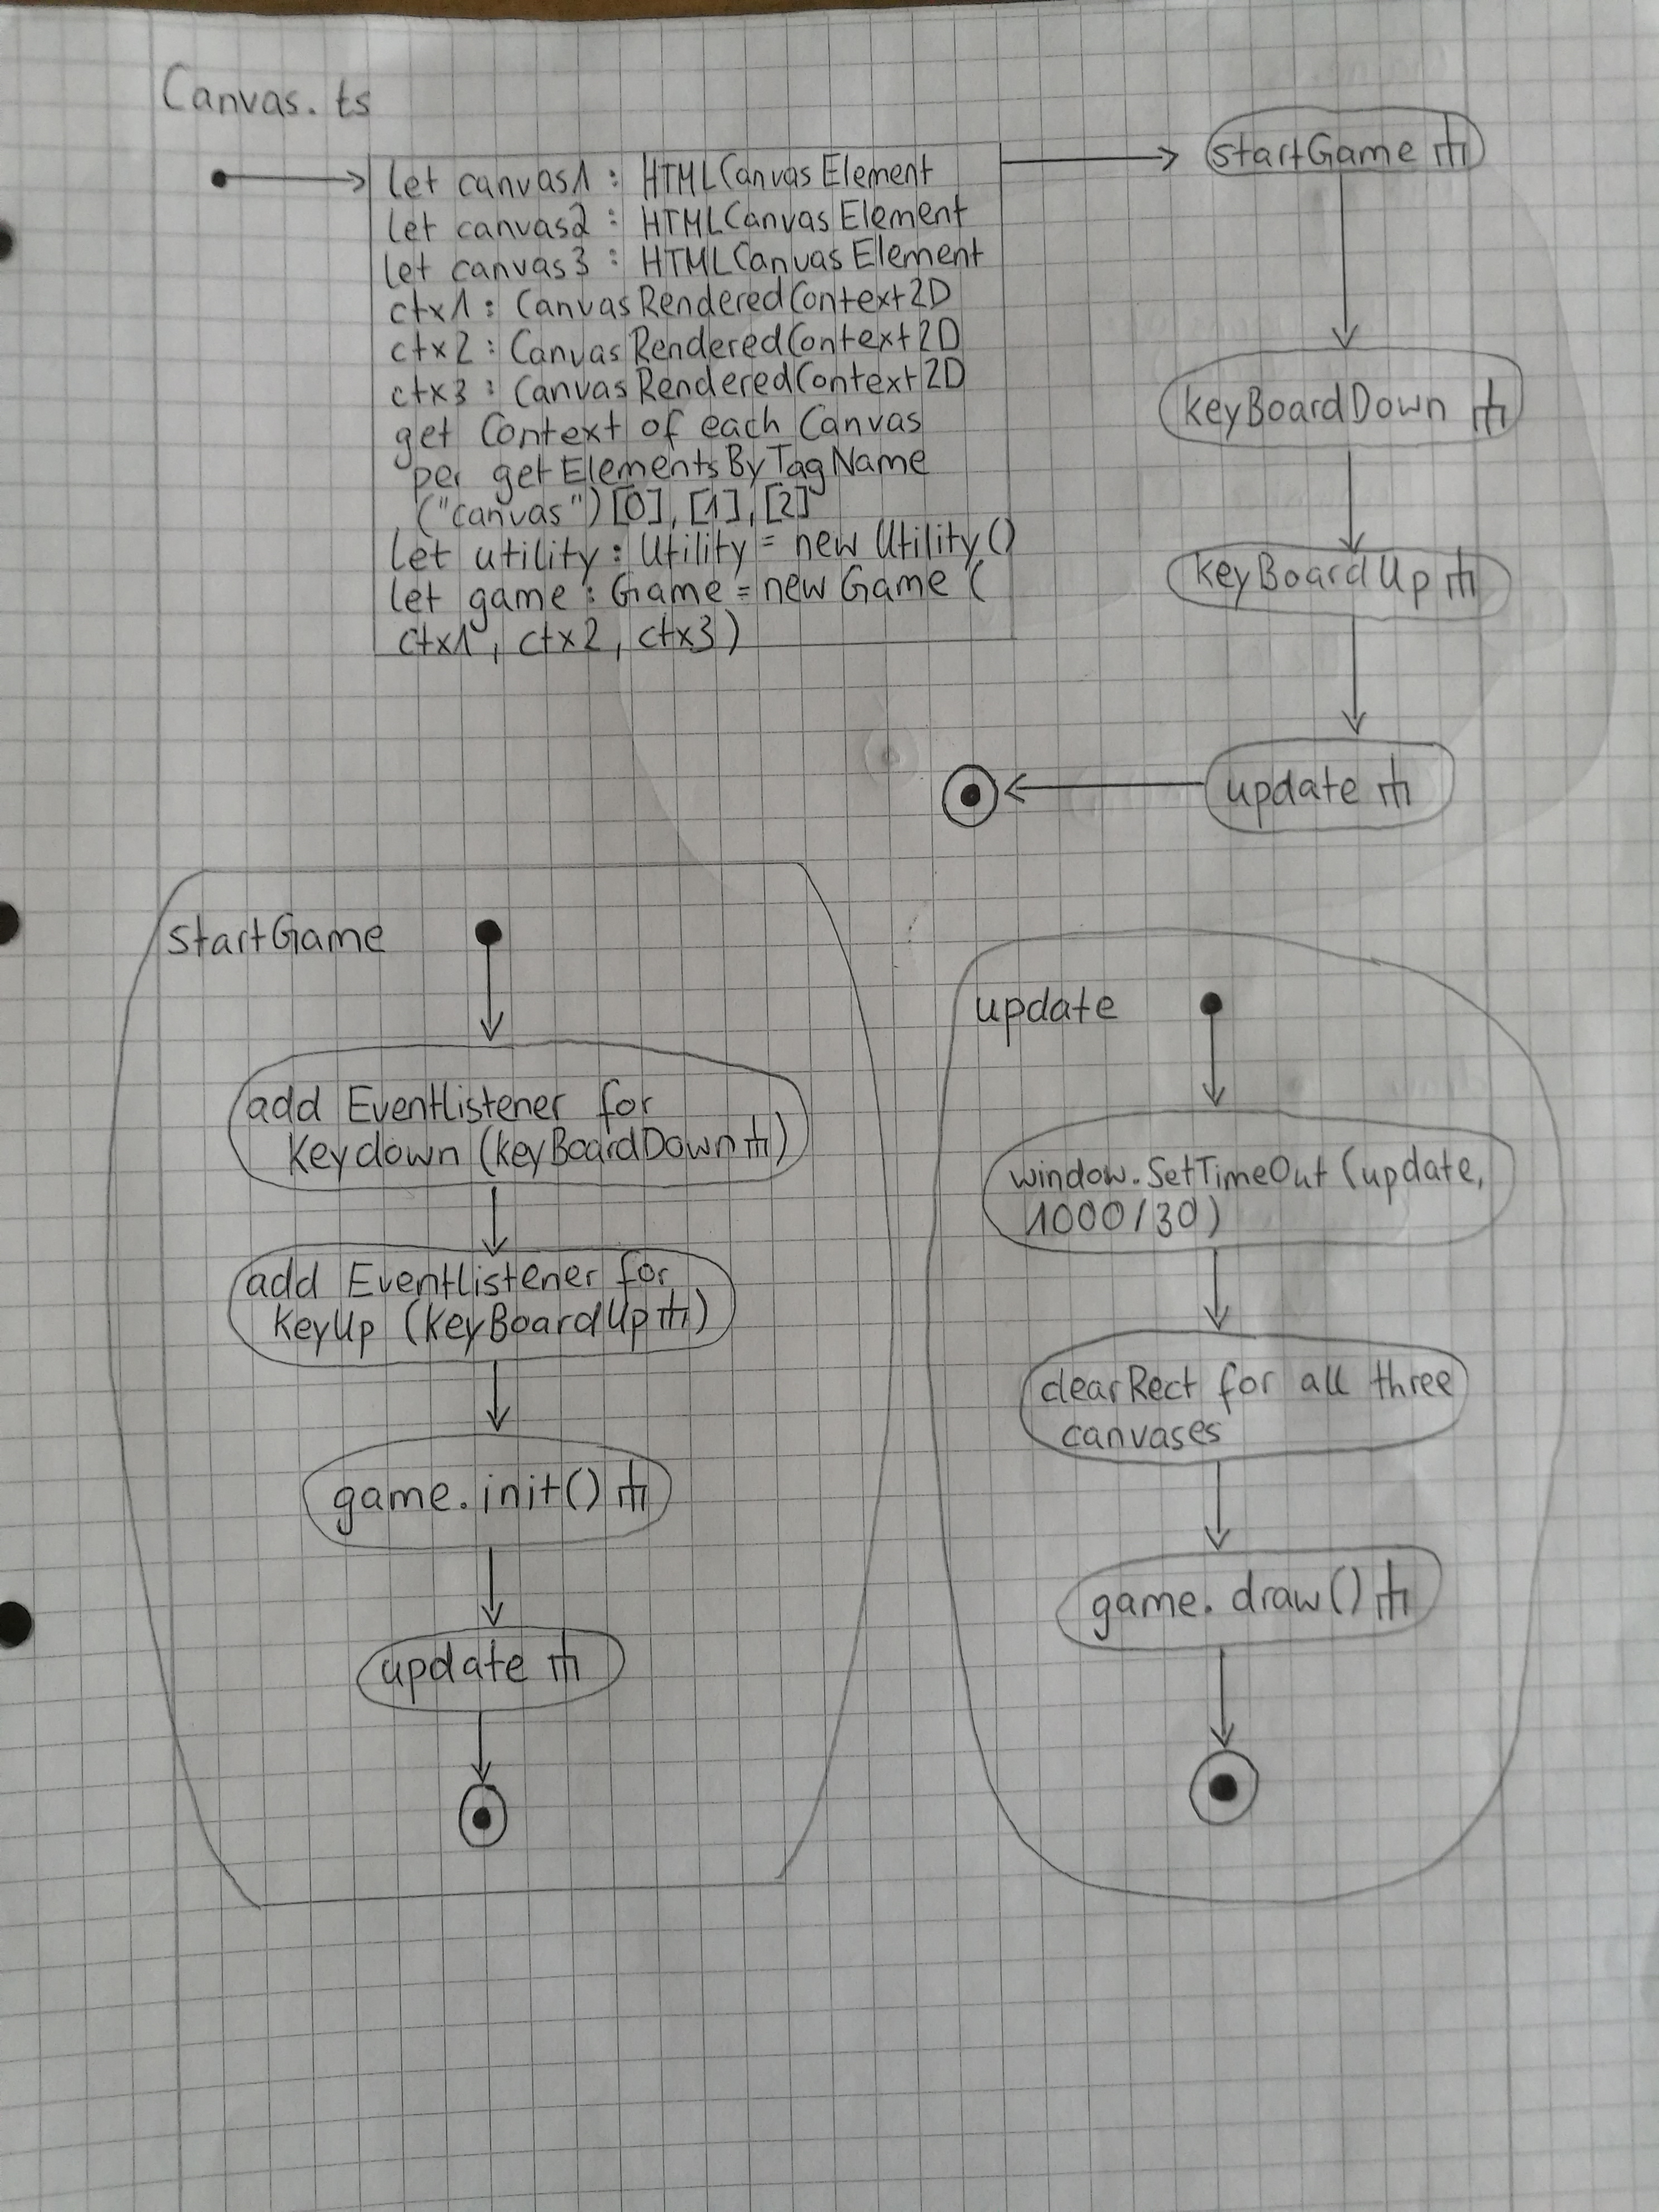 Canvas.ts
let canvas1 : HTMLCanvasElement
let canvas2 : HTMLCanvasElement
let canvas3 : HTMLCanvasElement
ctx1 : CanvasRenderedContext2D
ctx2 : CanvasRenderedContext2D
ctx3 : CanvasRenderedContext2D
get Context of each Canvas
per getElementsByTagName
("canvas")[0], [1], [2]
let utility : Utility = new Utility()
let game : Game = new Game (
ctx1, ctx2, ctx3)
startGame
keyBoardDown
keyBoardUp
update
startGame
add Eventlistener for
Keydown (keyBoardDown)
add Eventlistener for
KeyUp (KeyBoardUp)
game.init()
update
update
window.SetTimeOut (update,
1000/30)
clearRect for all three
canvases
game.draw()